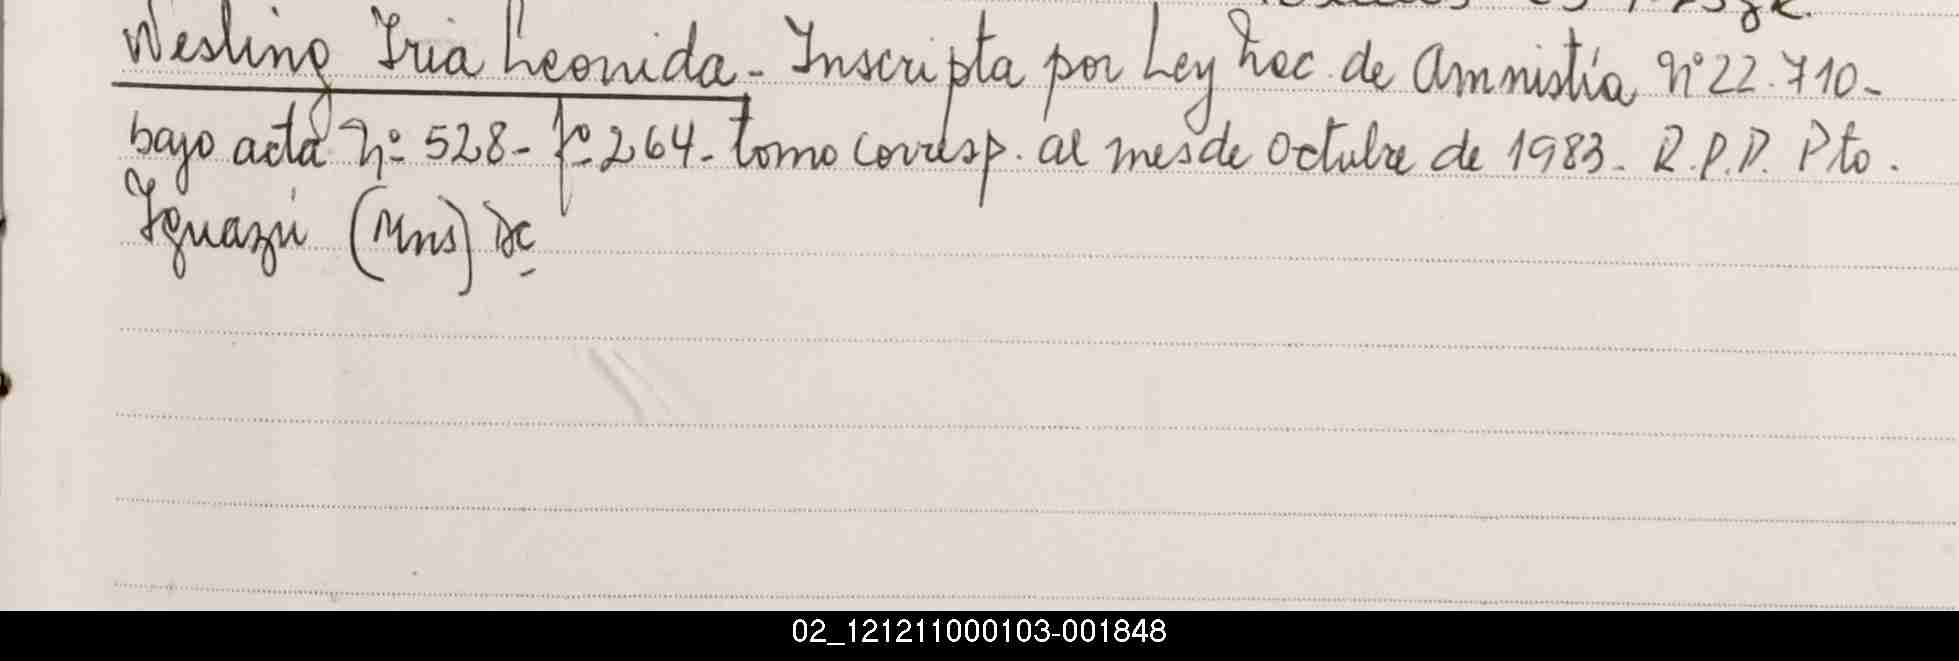 Wesling Iria Leonida - Inscripta por Ley Nac. de Amnistía Nº 22.710 -
bajo acta Nº 528 - fº 264 - tomo corresp. al mes de Octubre de 1983 - R.P.D. Pto.
Iguazú (Mns)
02_121211000103-001848